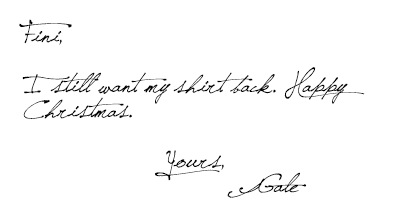 Fini,
I still want my shirt back. Happy
Christmas.
Yours,
Gale